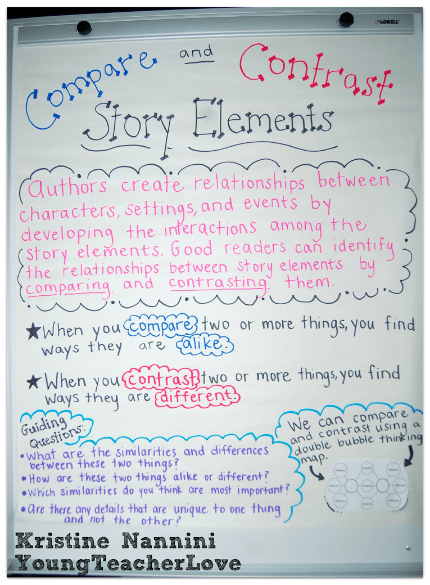 LORELL
Compare and Contrast
Story Elements
Authors create relationships between
characters, settings, and events by
developing the interactions among the
story elements. Good readers can identify
the relationships between story elements by
comparing and contrasting them.
★When you compare two or more things, you find
ways they are alike.
★When you contrast two or more things, you find
ways they are different.
Guiding
Questions:
•What are the similarities and differences
between these two things?
•How are these two things alike or different?
•Which similarities do you think are most important?
•Are there any details that are unique to one thing
and not the other?
We can compare
and contrast using a
double bubble thinking
map.
Kristine Nannini
YoungTeacherLove